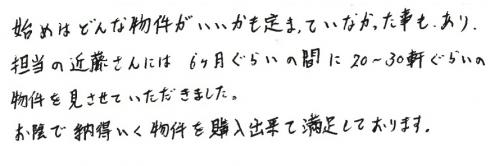 始めはどんな物件がいいかも定まっていなかった事も、あり、
担当の近藤さんには 6ヶ月ぐらいの間に 20〜30軒ぐらいの
物件を見させていただきました。
お陰で納得いく物件を購入出来て満足しております。